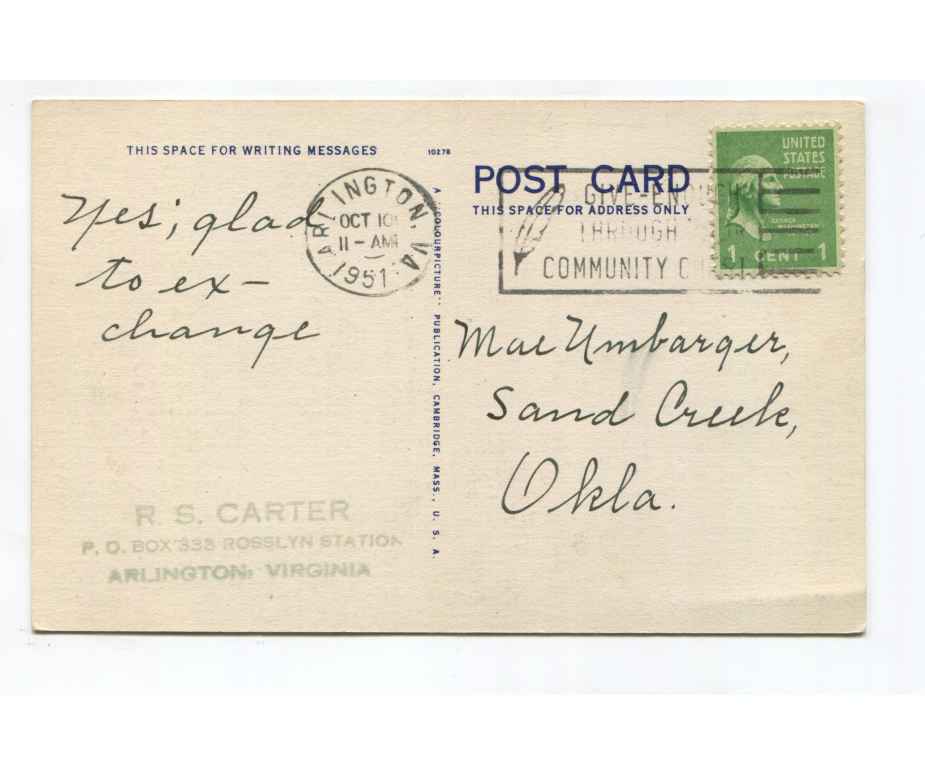 THIS SPACE FOR WRITING MESSAGES
10278
Yes; glad
to ex-
change
R. S. CARTER
P. O. BOX 333 ROSSLYN STATION
ARLINGTON, VIRGINIA
ARLINGTON, VA
OCT 10
11-AM
1951
A "COLOURPICTURE" PUBLICATION, CAMBRIDGE, MASS., U. S. A.
POST CARD
THIS SPACE FOR ADDRESS ONLY
GIVE-ENOUGH
THROUGH
COMMUNITY
UNITED
STATES
POSTAGE
GEORGE
WASHINGTON
1 CENT 1
Mae Umbarger,
Sand Creek,
Okla.